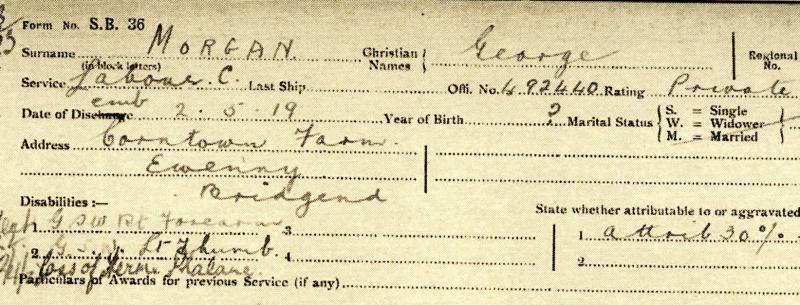 Form No. S.B. 36
Surname MORGAN. Christian Names { George Regional No.
(in block letters)
Service Labour C. Last Ship Offl. No. 492440 Rating Private
emb
Date of Discharge 2.5.19 Year of Birth ? Marital Status { S. = Single
W. = Widower
M. = Married
Address Corntown Farm.
Ewenny
Bridgend
Disabilities :—
State whether attributable to or aggravated
1. G S W Rt Forearm 3 1 attrib 30%
2. G.S.W. Lt Thumb. 4 2
loss of Term. Phalanx.
Particulars of Awards for previous Service (if any)